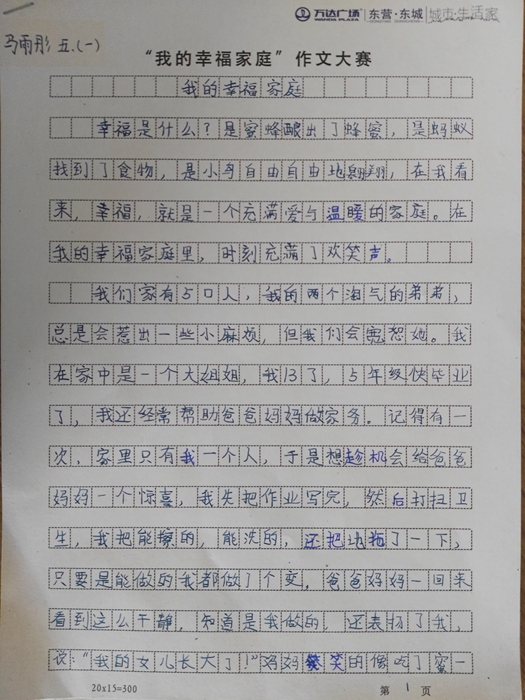 万达广场 WANDA PLAZA 东营·东城 城市·生活家
马雨彤 五.(一)
“我的幸福家庭”作文大赛
我的幸福家庭
幸福是什么?是蜜蜂酿出了蜂蜜,是蚂蚁
找到了食物,是小鸟自由自由地翱翔,在我看
来,幸福,就是一个充满爱与温暖的家庭。在
我的幸福家庭里,时刻充满了欢笑声。
我们家有5口人,我的两个淘气的弟弟,
总是会惹出一些小麻烦,但我们会宽恕她。我
在家中是一个大姐姐,我13了,5年级快毕业
了,我还经常帮助爸爸妈妈做家务。记得有一
次,家里只有我一个人,于是想趁机会给爸爸
妈妈一个惊喜,我先把作业写完,然后打扫卫
生,我把能擦的,能洗的,还把地拖了一下,
只要是能做的我都做了个变。爸爸妈妈一回来
看到这么干静,知道是我做的,还表扬了我,
说:“我的女儿长大了!”妈妈笑笑的像吃了蜜一
20x15=300
第1页